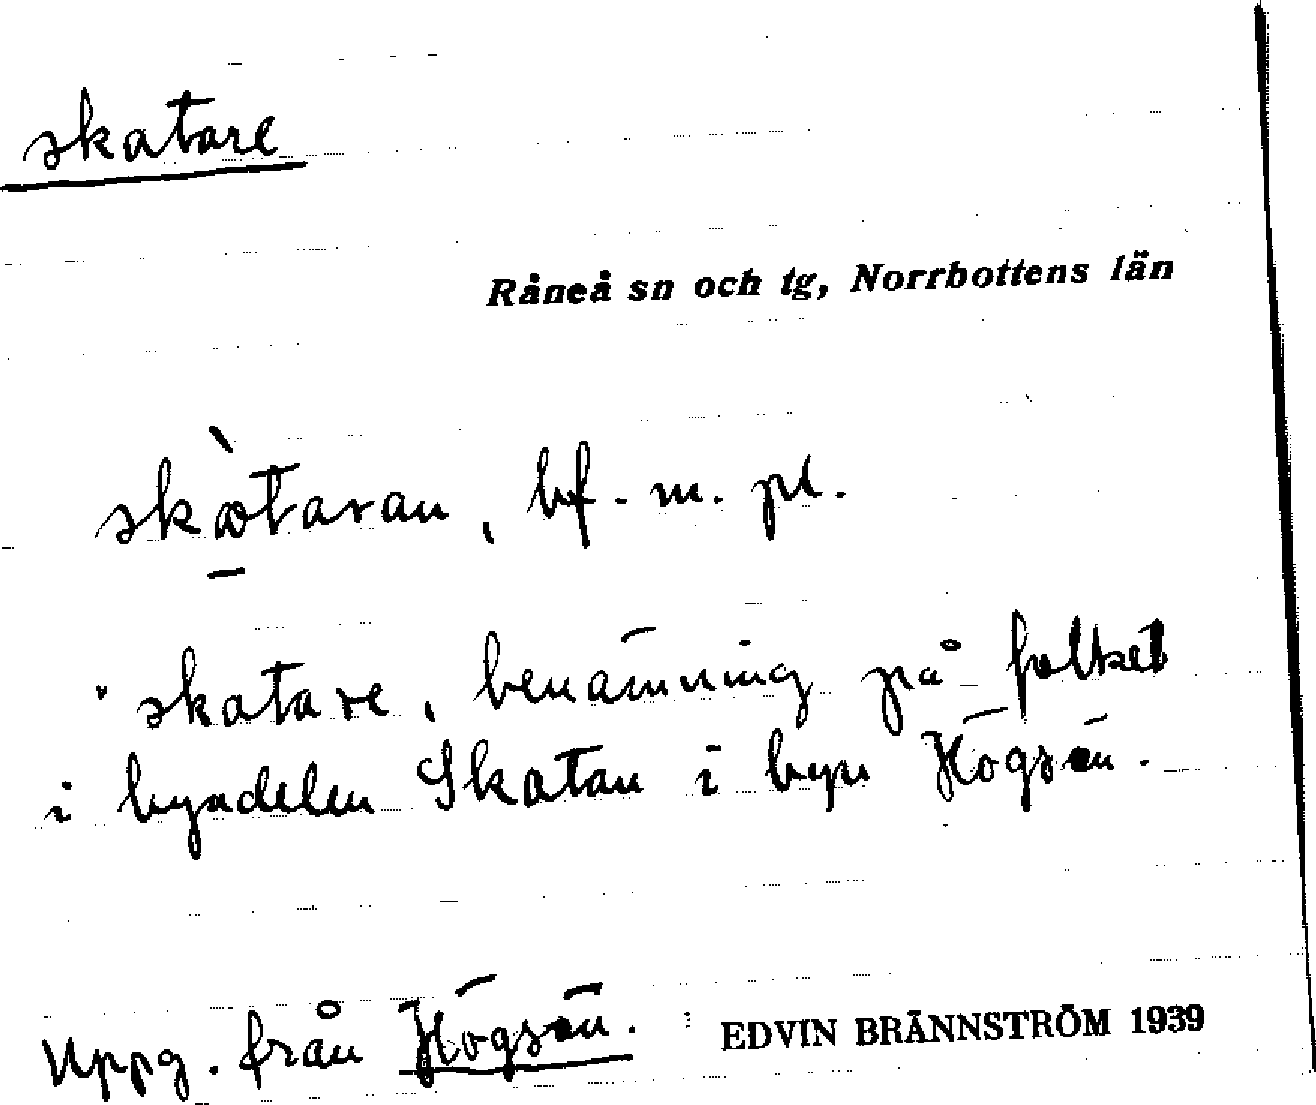 skatare
Råneå sn och tg, Norrbottens län
skàtaran, bf. m. pl.
"skatare, benämning på folket
i byadelen Skatan i byn Högsön.
Uppg. från Högsön.
EDVIN BRÄNNSTRÖM 1939